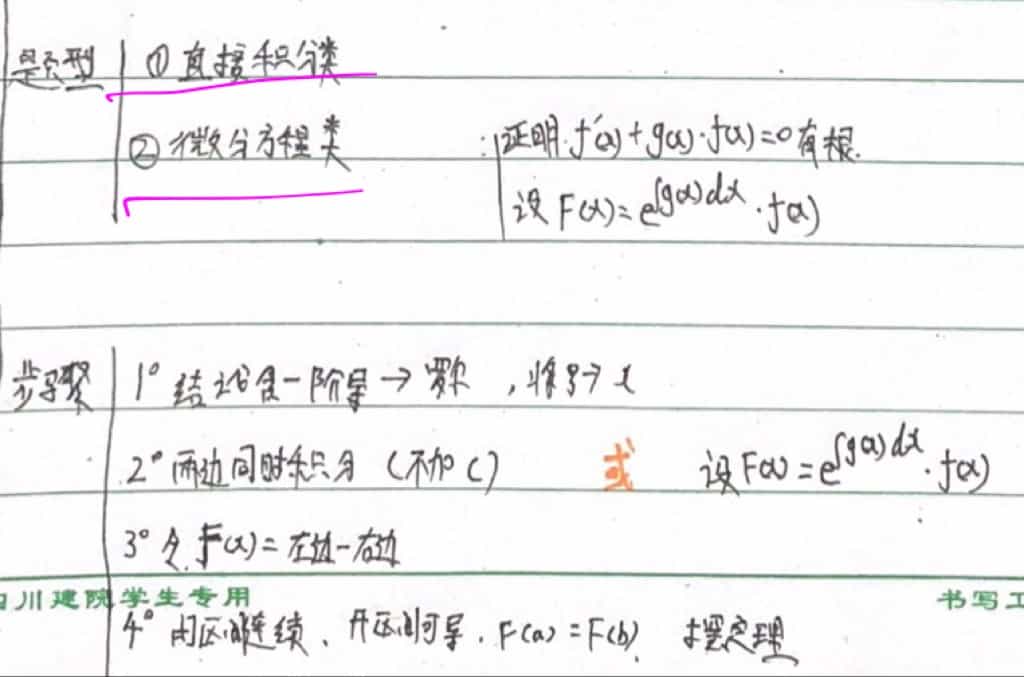 题型 ① 直接积分类
② 微分方程类 : 证明 f'(x)+g(x)·f(x)=0有根.
设 F(x)=e^{∫g(x)dx}·f(x)
步骤 1° 结论含一阶导→罗尔,将ξ→x
2° 两边同时积分 (不加C) 或 设F(x)=e^{∫g(x)dx}·f(x)
3° 令 F(x)=左边-右边
川建院学生专用 书写
4° 闭区间连续、开区间可导、F(a)=F(b) 摆定理